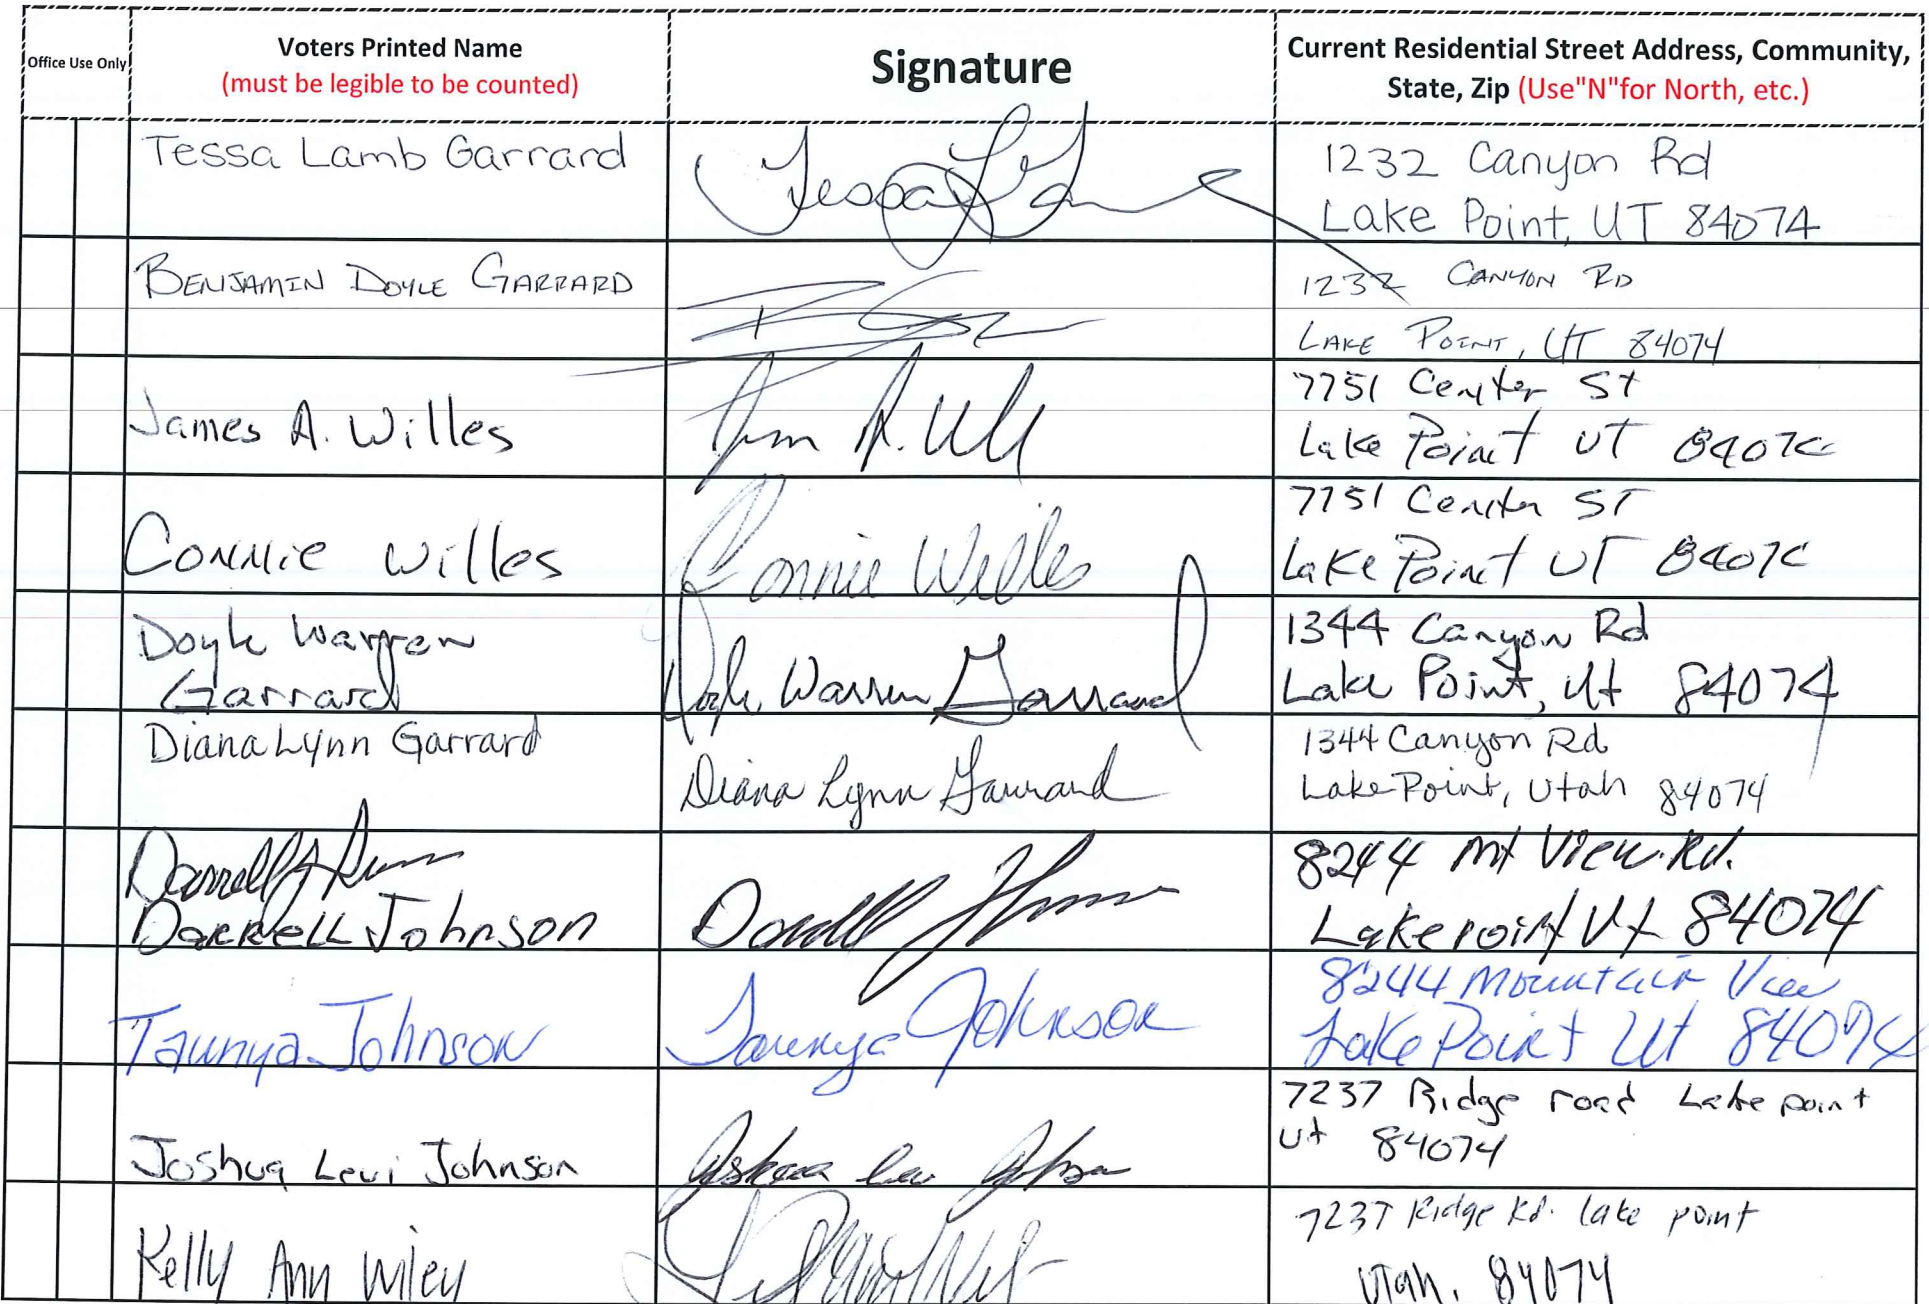 Office Use Only
Voters Printed Name
(must be legible to be counted)
Signature
Current Residential Street Address, Community,
State, Zip (Use"N"for North, etc.)
Tessa Lamb Garrard
1232 Canyon Rd
Lake Point, UT 84074
BENJAMIN DOYLE GARRARD
1232 CANYON RD
LAKE POINT, UT 84074
James A. Willes
Jim A.
7751 Center St
Lake Point UT 84074
Connie Willes
Connie Willes
7751 Center ST
Lake Point UT 84074
Doyle Warren
Garrard
Doyle Warren Garrard
1344 Canyon Rd
Lake Point, Ut 84074
Diana Lynn Garrard
Diana Lynn Garrard
1344 Canyon Rd
Lake Point, Utah 84074
Darrell
Darrell Johnson
8244 Mt View Rd.
Lakepoint Ut 84074
Taunya Johnson
Taunya Johnson
8244 Mountain View
Lake Point Ut 84074
Joshua Levi Johnson
Joshua Levi Johnson
7237 Ridge road Lake point
Ut 84074
Kelly Ann Wiley
7237 Ridge Rd. lake point
Utah, 84074